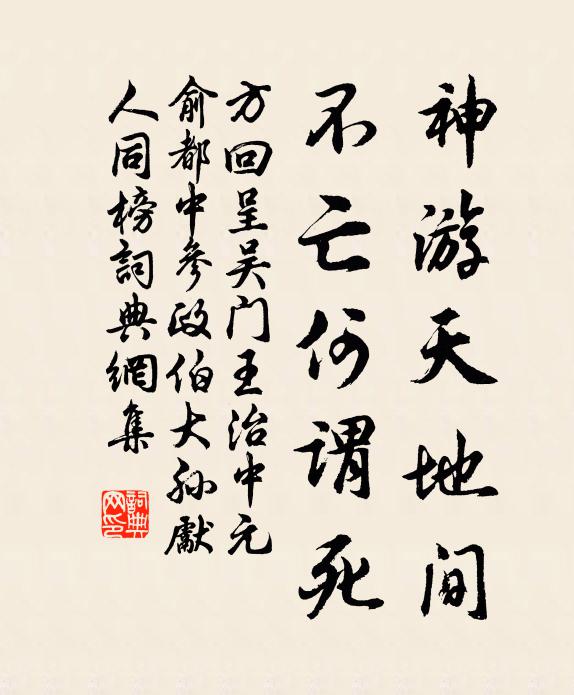 神游天地间
不亡何谓死
方回呈吴门王治中元
俞都中参政伯大孙献
人同榜詞典網集
詞典
网印